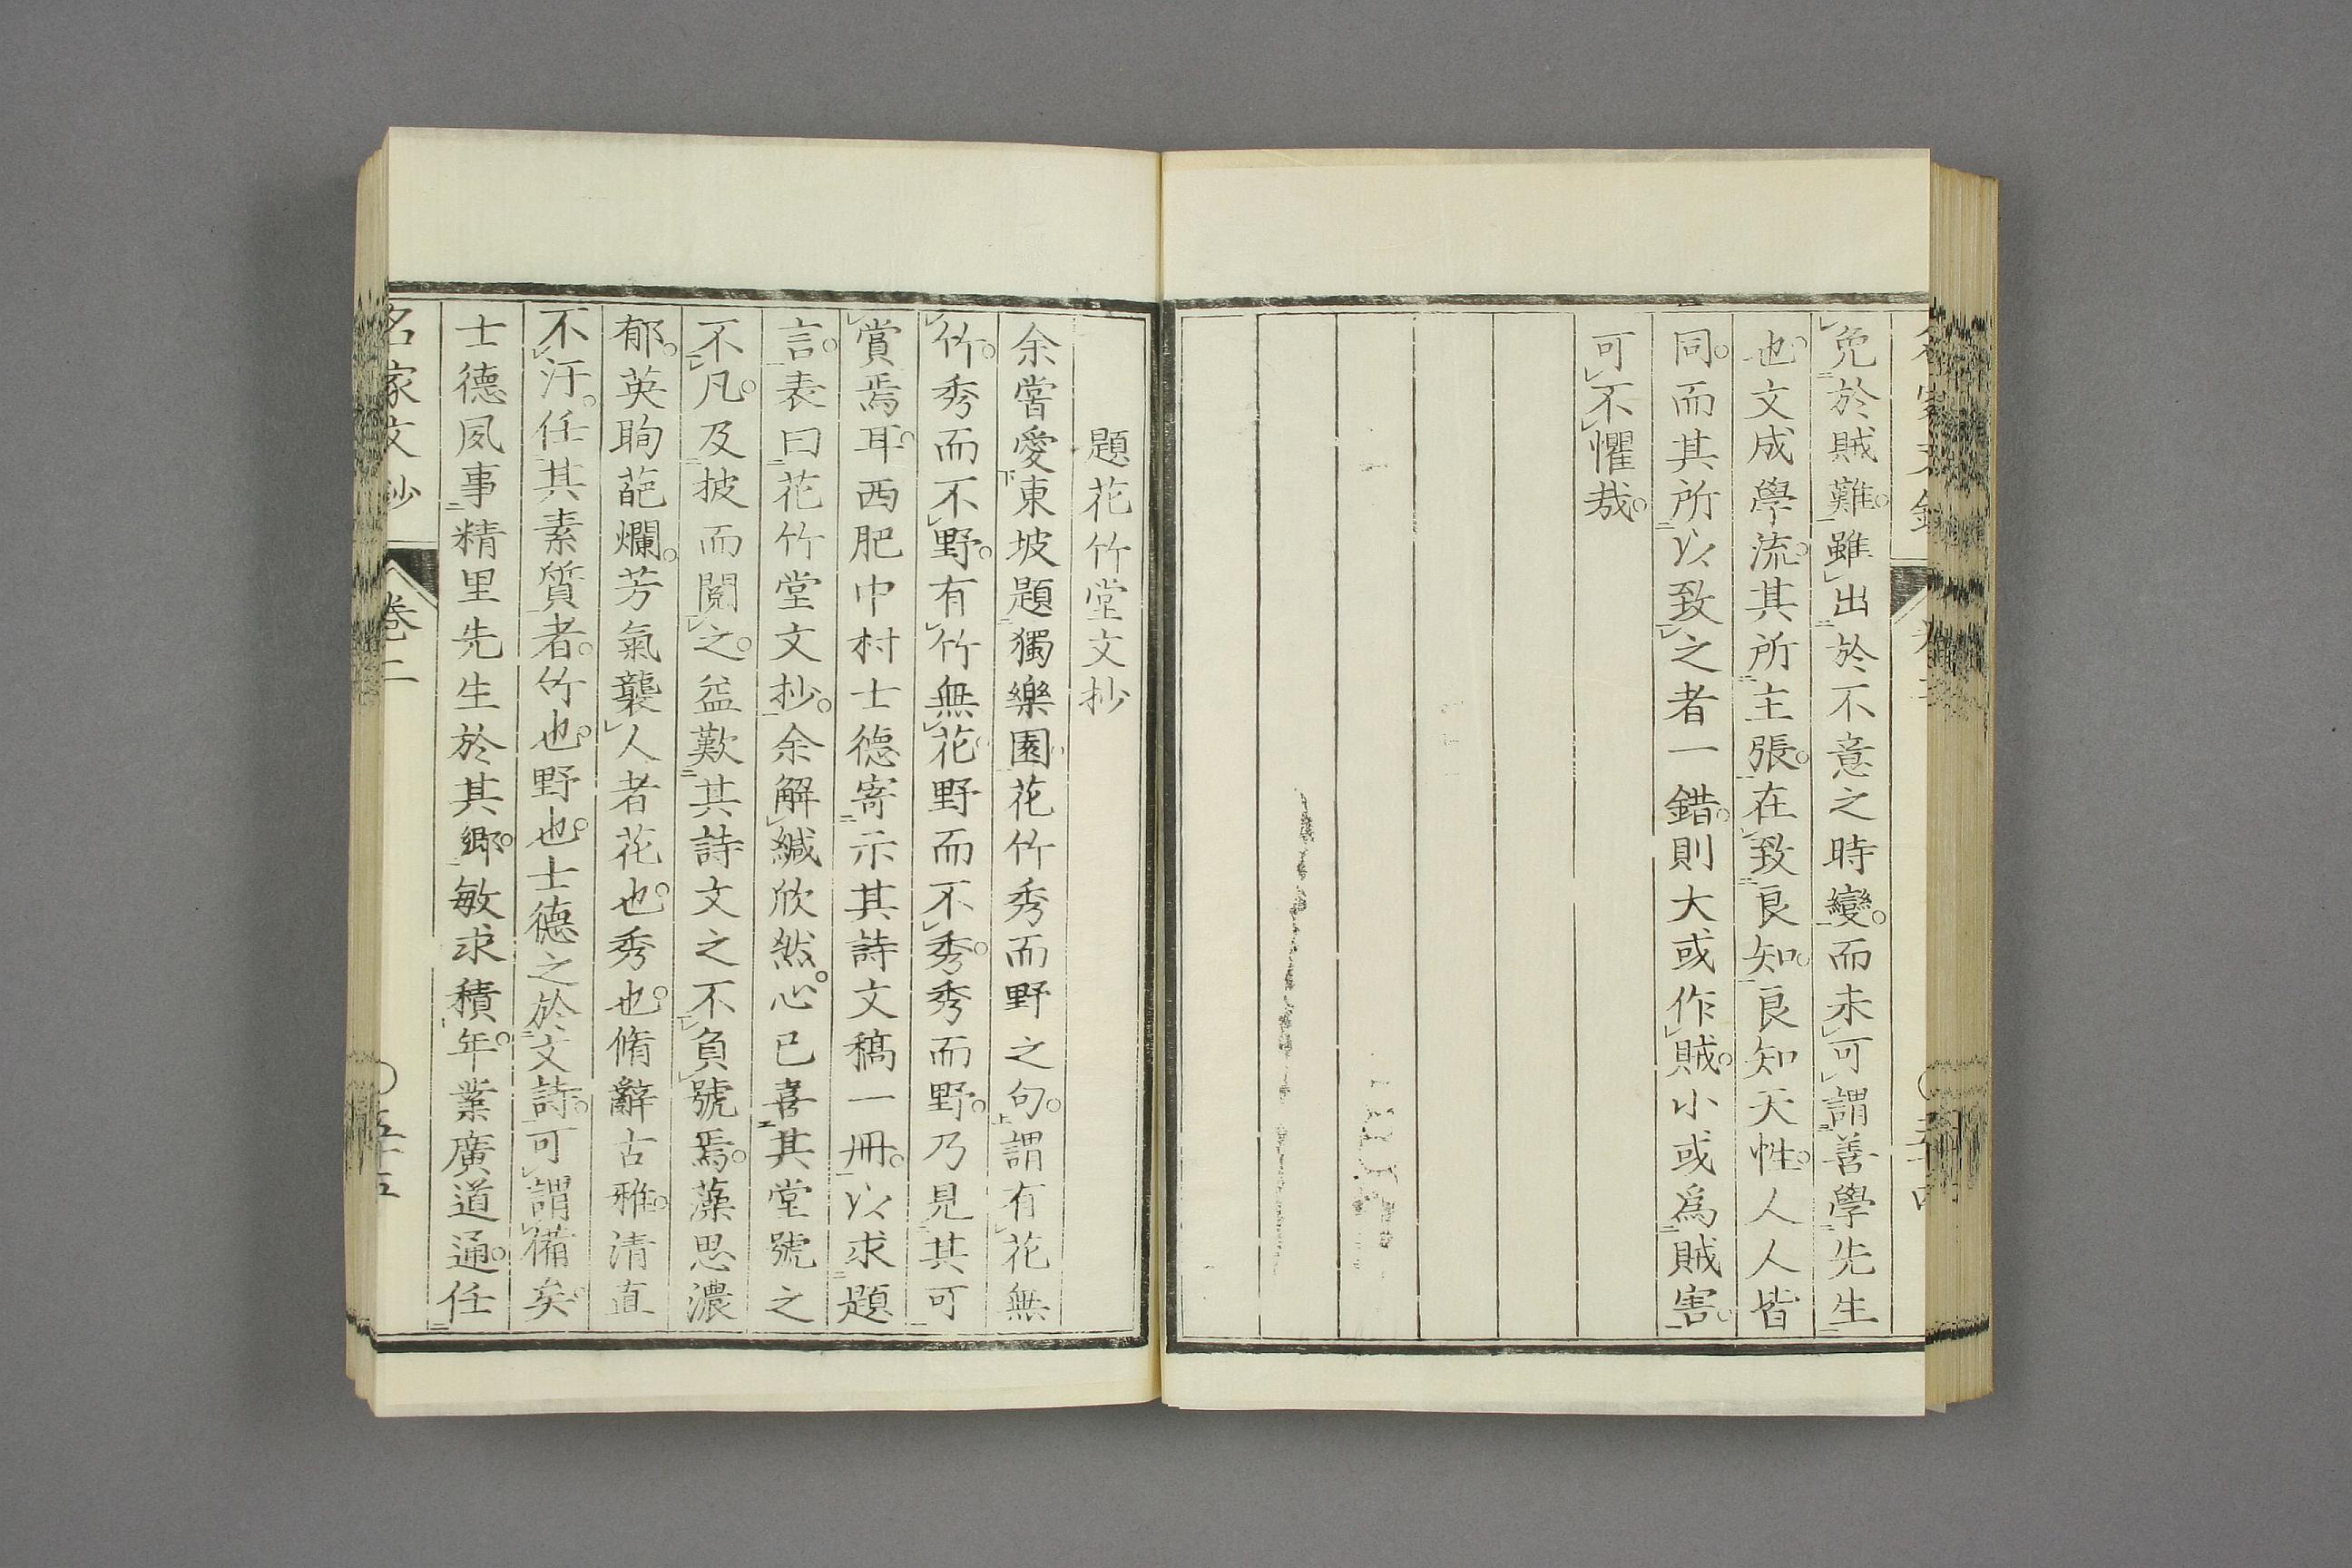 免於賊難。雖出於不意之時變。而未可謂善學先生
也。文成學流。其所主張。在致良知。良知天性。人人皆
同。而其所以致之者一錯。則大或作賊。小或爲賊害。
可不懼哉。
題花竹堂文抄
余嘗愛東坡題獨樂園花竹秀而野之句。謂有花無
竹。秀而不野。有竹無花。野而不秀。秀而野。乃見其可
賞焉耳。西肥中村士德寄示其詩文稿一冊。以求題
言。表曰花竹堂文抄。余解緘欣然。心已喜其堂號之
不凡。及披而閱之。益歎其詩文之不負號焉。藻思濃
郁。英眴葩爛。芳氣襲人者花也。秀也。脩辭古雅。清直
不汙。任其素質者。竹也。野也。士德之於文詩。可謂備矣。
士德夙事精里先生於其鄉。敏求積年。業廣道通。任
名家文抄 卷二 〇五十五